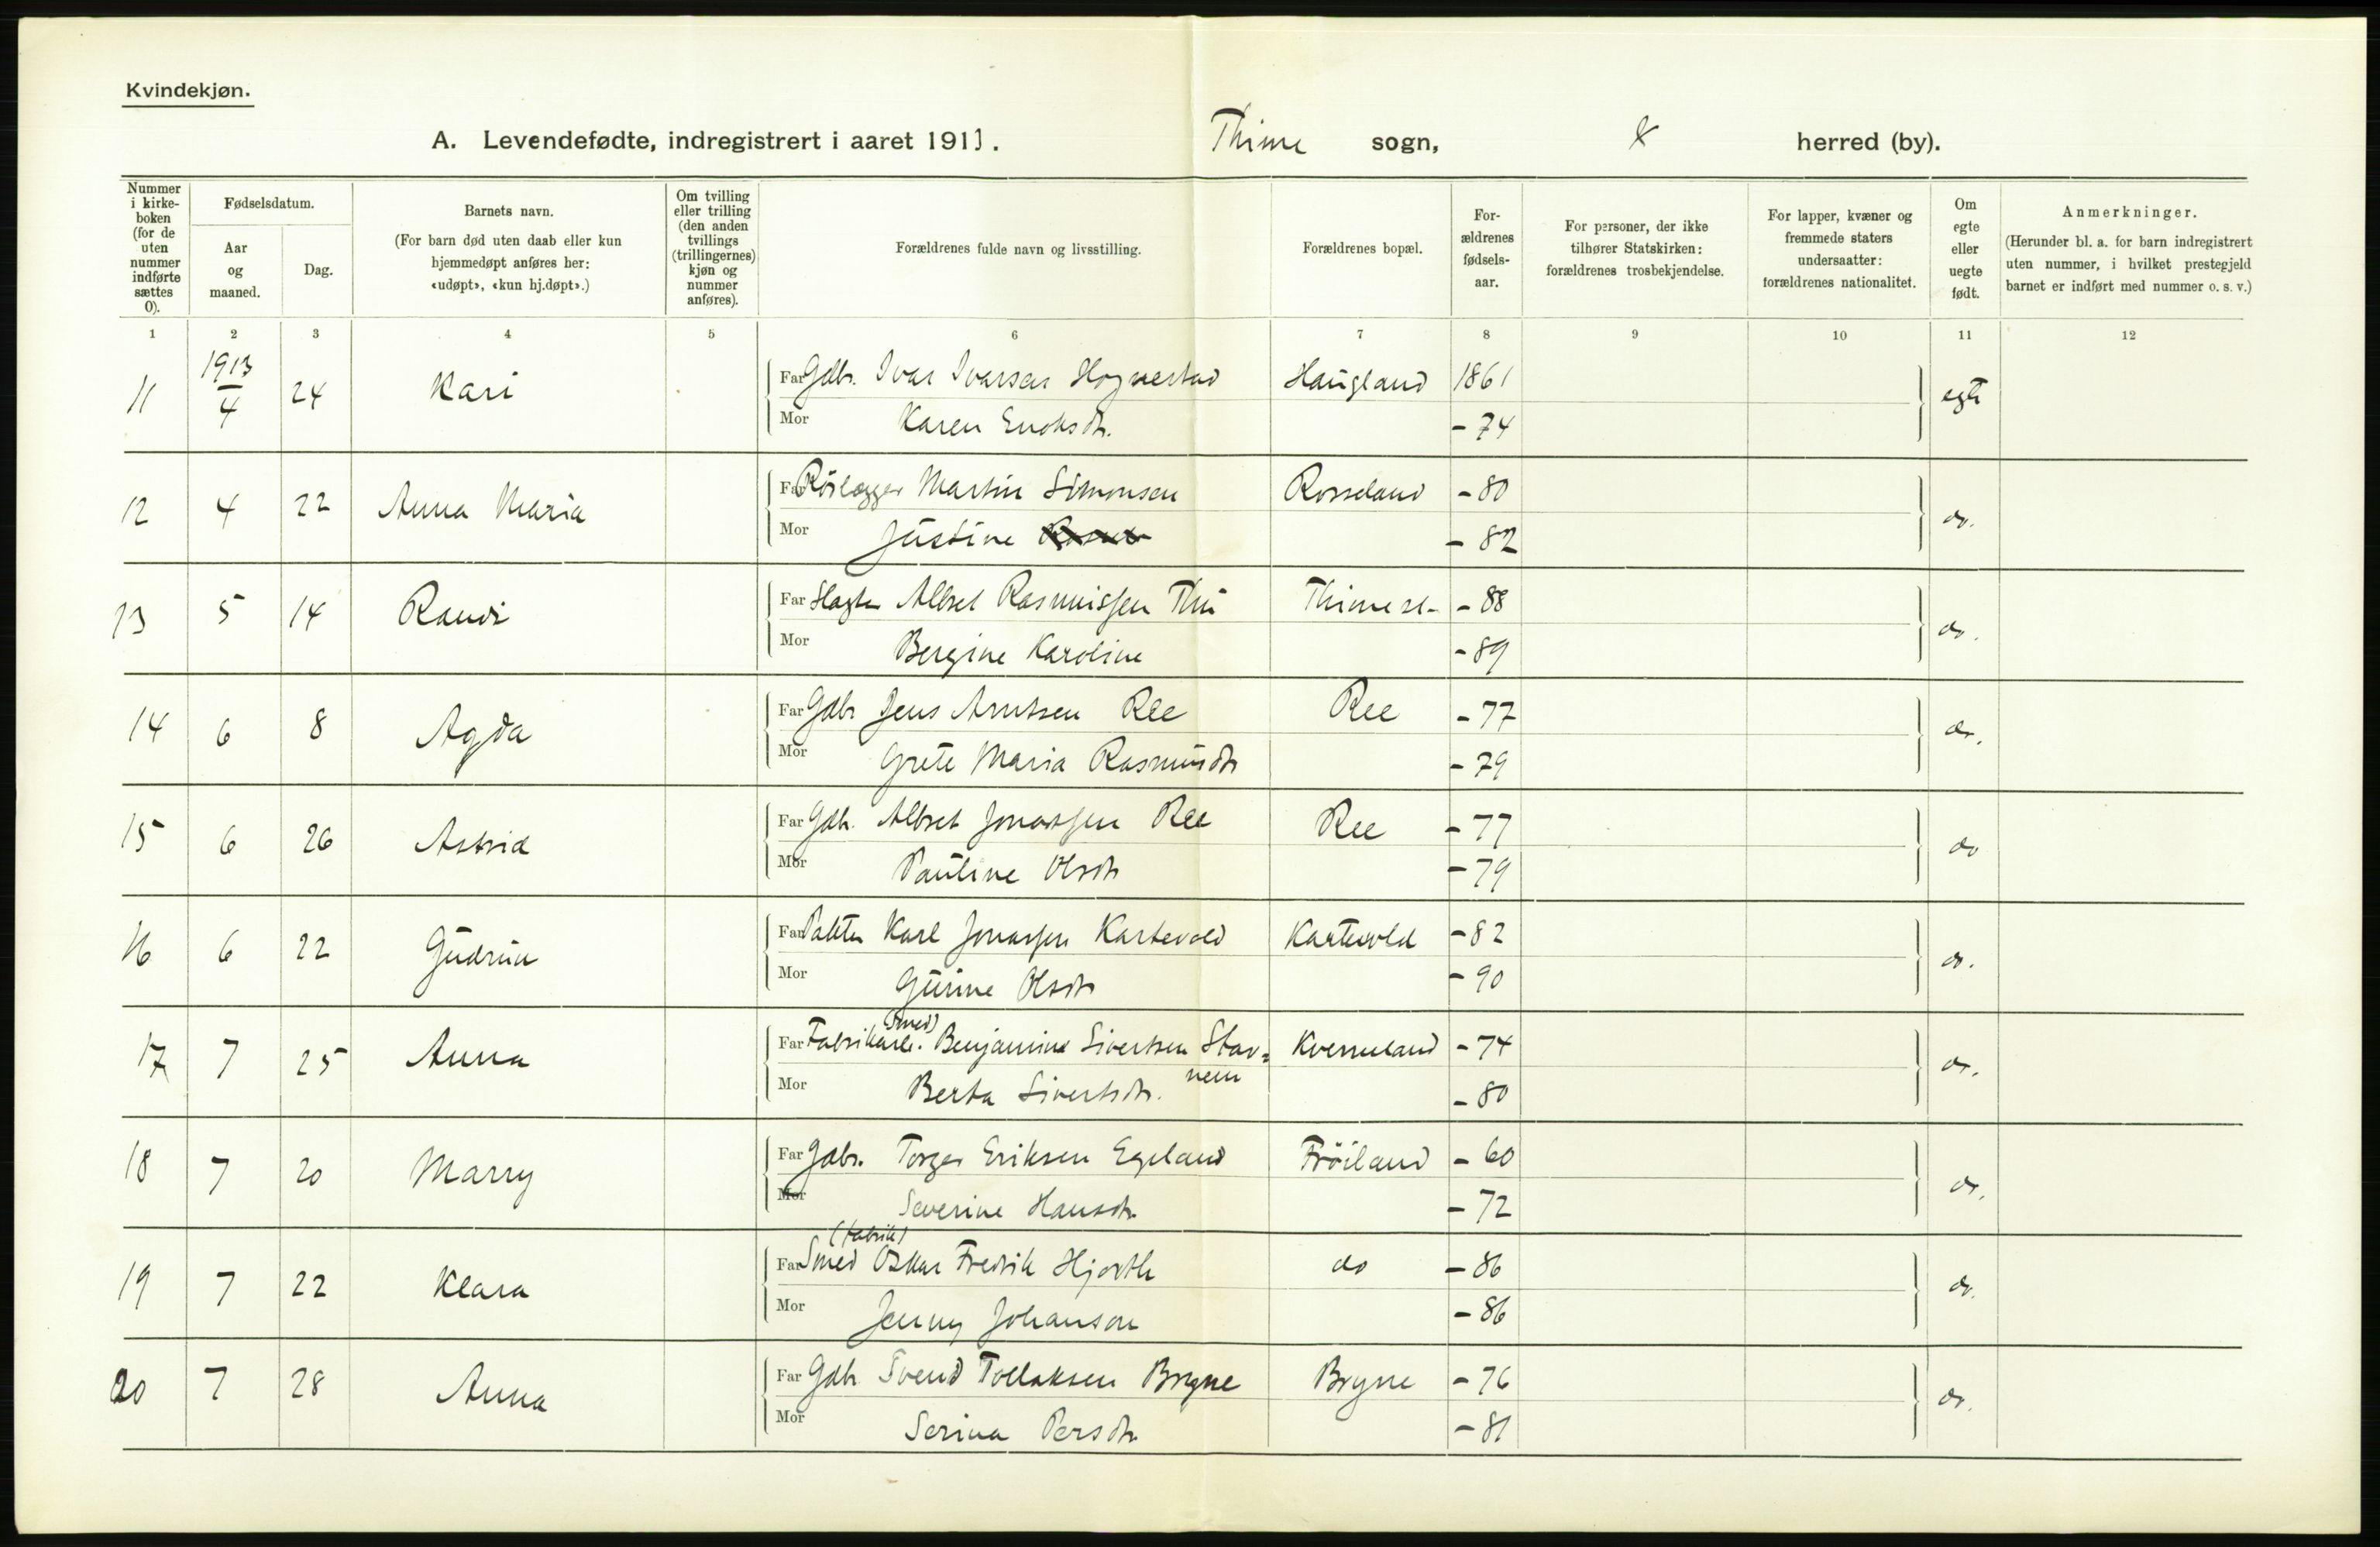 Kvindekjøn.
A. Levendefødte, indregistrert i aaret 1913. Thime sogn, herred (by).
Nummer i kirke-boken (for de uten nummer indførte sættes 0).
Fødselsdatum.
Aar og maaned.
Dag.
Barnets navn.
(For barn død uten daab eller kun hjemmedøpt anføres her: «udøpt», «kun hj.døpt».)
Om tvilling eller trilling (den anden tvillings (trillingernes) kjøn og nummer anføres).
Forældrenes fulde navn og livsstilling.
Forældrenes bopæl.
For-ældrenes fødsels-aar.
For personer, der ikke tilhører Statskirken: forældrenes trosbekjendelse.
For lapper, kvæner og fremmede staters undersaatter: forældrenes nationalitet.
Om egte eller uegte født.
Anmerkninger.
(Herunder bl. a. for barn indregistrert uten nummer, i hvilket prestegjeld barnet er indført med nummer o. s. v.)
1 2 3 4 5 6 7 8 9 10 11 12
11 1913/4 24 Kari Far Gdbr. Ivar Ivarsen Hognestad Haugland 1861 egte
Mor Karen Enoksdtr. - 74
12 4 22 Anna Maria Far Rörlægger Martin Simonsen Rosseland - 80 do.
Mor Justine - 82
13 5 14 Randi Far Slagter Albret Rasmussen Thu Thime st. - 88 do.
Mor Bergine Karoline - 89
14 6 8 Agda Far Gdbr Jens Arntsen Ree Ree - 77 do.
Mor Grete Maria Rasmusdtr - 79
15 6 26 Astrid Far Gdbr. Albret Jonassen Ree Ree - 77 do
Mor Pauline Olsdtr - 79
16 6 22 Gudrun Far Karl Jonassen Kartevold Kartevold - 82 do.
Mor Gurine Olsdtr - 90
(smed)
17 7 25 Anna Far Fabrikarb. Benjamine Sivertsen Stav= Kverneland - 74 do.
nem
Mor Berta Sivertsdtr. - 80
18 7 20 Marry Far Gdbr. Torger Eriksen Egeland Fröiland - 60 do.
Mor Severine Hansdtr - 72
(fabrik)
19 7 22 Klara Far Smed Oskar Fredrik Hjorth do - 86 do.
Mor Jenny Johanson - 86
20 7 28 Anna Far Gdbr Svend Tollaksen Bryne Bryne - 76 do.
Mor Serina Persdtr - 81